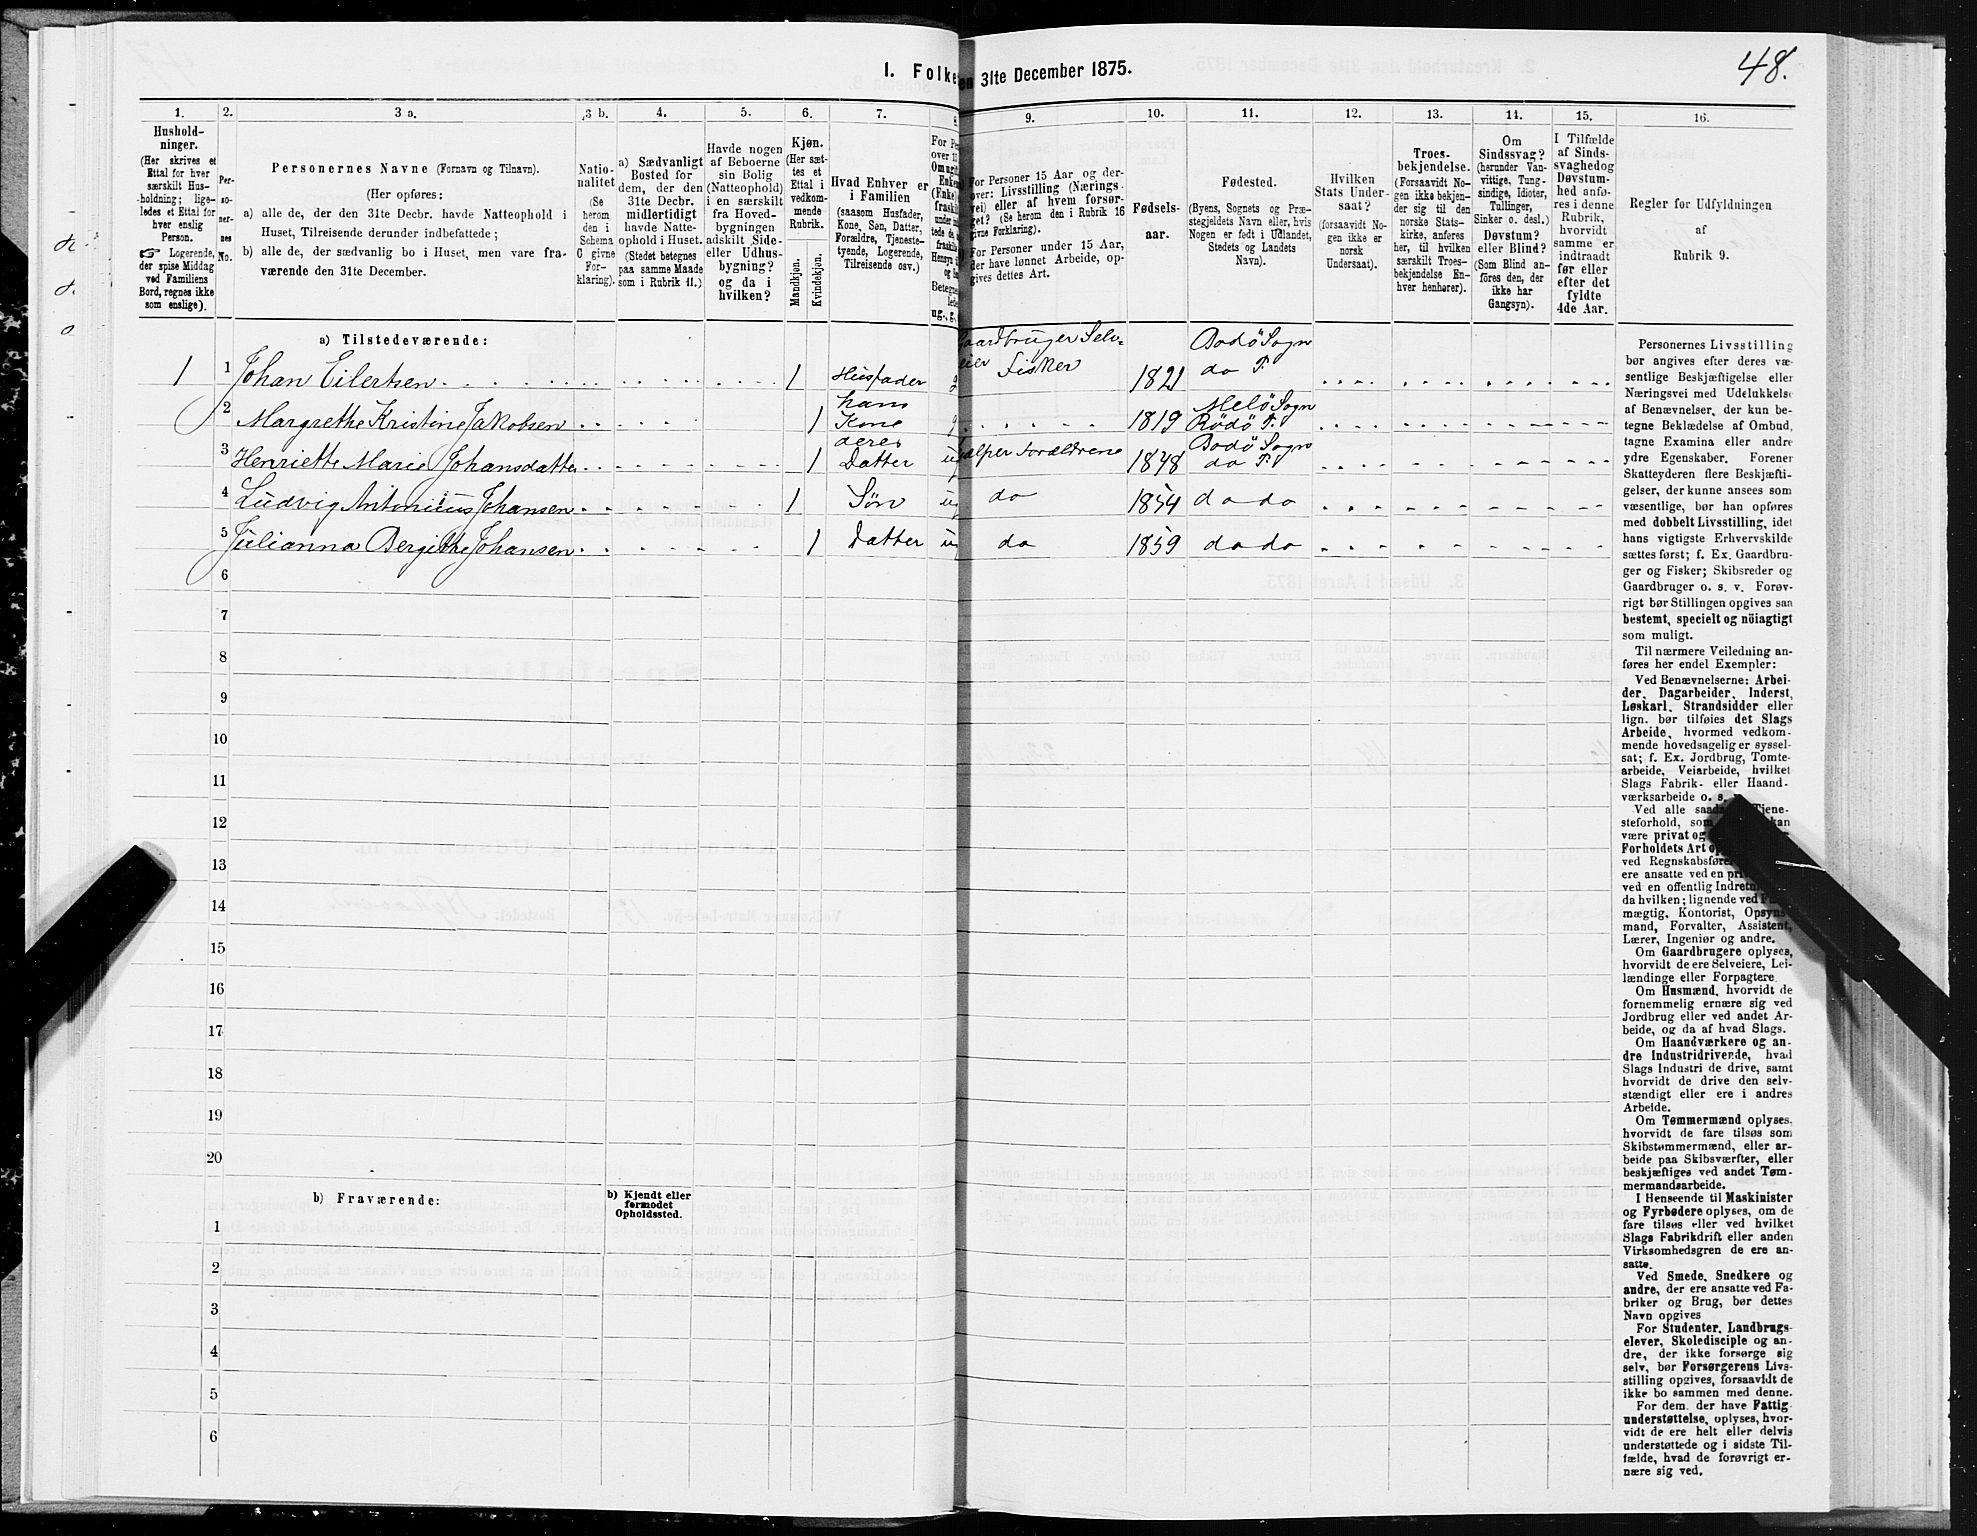 48.
I. Folke
en 31te December 1875.
1.
2.
3 a.
3 b.
4.
5.
6.
7.
8.
9.
10.
11.
12.
13.
14.
15.
16.
Hushold-
ninger.
(Her skrives et
Ettal for hver
særskilt Hus-
holdning; lige-
ledes et Ettal for
hver enslig
Person.
☞ Logerende,
der spise Middag
ved Familiens
Bord, regnes ikke
som enslige).
Per-
so-
ner-
nes
No.
Personernes Navne (Fornavn og Tilnavn).
(Her opføres:
a) alle de, der den 31te Decbr. havde Natteophold i
Huset, Tilreisende derunder indbefattede;
b) alle de, der sædvanlig bo i Huset, men vare fra-
værende den 31te December.
Natio-
nalitet
(Se
herom
den i
Schema
C givne
For-
klaring).
a) Sædvanligt
Bosted for
dem, der den
31te Decbr.
midlertidigt
havde Natte-
ophold i Huset.
(Stedet betegnes
paa samme Maade
som i Rubrik 11.)
Havde nogen
af Beboerne
sin Bolig
(Natteophold)
i en særskilt
fra Hoved-
bygningen
adskilt Side-
eller Udhus-
bygning?
og da i
hvilken?
Kjøn.
(Her sæt-
tes et
Ettal i
vedkom-
mende
Rubrik.
Mandkjøn.
Kvindekjøn.
Hvad Enhver er
i Familien
(saasom Husfader,
Kone, Søn, Datter,
Forældre, Tjeneste-
tyende, Logerende,
Tilreisende osv.)
For Personer 15 Aar og der-
over: Livsstilling (Nærings-
vei) eller af hvem forsør-
get? (Se herom den i Rubrik 16
givne Forklaring).
For Personer under 15 Aar,
der have lønnet Arbeide, op-
gives dettes Art.
Fødsels-
aar.
Fødested.
(Byens, Sognets og Præ-
stegjeldets Navn eller, hvis
Nogen er født i Udlandet,
Stedets og Landets
Navn).
Hvilken
Stats Under-
saat?
(forsaavidt No-
gen ikke er
norsk
Undersaat).
Troes-
bekjendelse.
(Forsaavidt No-
gen ikke bekjen-
der sig til den
norske Stats-
kirke, anføres
her, til hvilken
særskilt Troes-
bekjendelse En-
hver henhører).
Om
Sindssvag?
(herunder Van-
vittige, Tung-
sindige, Idioter,
Tullinger,
Sinker o. desl.)
Døvstum?
eller Blind?
(Som Blind an-
føres den, der
ikke har
Gangsyn).
I Tilfælde
af Sinds-
svaghed og
Døvstum-
hed anfø-
res i denne
Rubrik,
hvorvidt
samme er
indtraadt
før eller
efter det
fyldte
4de Aar.
Regler for Udfyldningen
af
Rubrik 9.
a) Tilstedeværende:
1 1 Johan Eilertsen 1 Husfader g Gaardbruger Selv-
eier Fisker 1821 Bodö Sogn
do P.
2 Margrethe Kristine Jakobsen 1 hans
Kone g 1819 Melö Sogn
Rödö P.
3 Henriette Marie Johansdatter 1 deres
Datter ug hjælper Forældrene 1848 Bodö Sogn
do P.
4 Ludvig Antonius Johansen 1 Sön ug do 1854 do do
5 Julianna Bergitthe Johansen 1 Datter ug do 1859 do do
6
7
8
9
10
11
12
13
14
15
16
17
18
19
20
b) Fraværende:
b) Kjendt eller
formodet
Opholdssted.
1
2
3
4
5
6
Personernes Livsstilling
bør angives efter deres væ-
sentlige Beskjæftigelse eller
Næringsvei med Udelukkelse
af Benævnelser, der kun be-
tegne Beklædelse af Ombud,
tagne Examina eller andre
ydre Egenskaber. Forener
Skatteyderen flere Beskjæfti-
gelser, der kunne ansees som
væsentlige, bør han opføres
med dobbelt Livsstilling, idet
hans vigtigste Erhvervskilde
sættes først; f. Ex. Gaardbru-
ger og Fisker; Skibsreder og
Gaardbruger o. s. v. Forøv-
rigt bør Stillingen opgives saa
bestemt, specielt og nöiagtigt
som muligt.
Til nærmere Veiledning an-
føres her endel Exempler:
Ved Benævnelserne: Arbei-
der, Dagarbeider, Inderst,
Løskarl, Strandsidder eller
lign. bør tilføies det Slags
Arbeide, hvormed vedkom-
mende hovedsagelig er syssel-
sat; f. Ex. Jordbrug, Tomte-
arbeide, Veiarbeide, hvilket
Slags Fabrik- eller Haand-
værksarbeide o. s.
Ved alle Tjene-
steforhold, kan
være privat og
Forholdets Art
ved Regnskabsføre
ere ansatte ved en
ved en offentlig
da hvilken; lignende ved
mægtig, Kontorist, Opsyns-
mand, Forvalter, Assistent,
Lærer, Ingeniør og andre.
Om Gaardbrugere oplyses,
hvorvidt de ere Selveiere, Lei-
lændinge eller Forpagtere.
Om Husmænd, hvorvidt de
fornemmelig ernære sig ved
Jordbrug eller ved andet Ar-
beide, og da af hvad Slags.
Om Haandværkere og an-
dre Industridrivende, hvad
Slags Industri de drive, samt
hvorvidt de drive den selv-
stændigt eller ere i andres
Arbeide.
Om Tømmermænd oplyses,
hvorvidt de fare tilsøs som
Skibstømmermænd, eller ar-
beide paa Skibsværfter, eller
beskjæftiges ved andet Tøm-
mermandsarbeide.
I Henseende til Maskinister
og Fyrbødere oplyses, om de
fare tilsøs eller ved hvilket
Slags Fabrikdrift eller anden
Virksomhedsgren de ere an-
satte.
Ved Smede, Snedkere og
andre, der ere ansatte ved Fa-
briker og Brug, bør dettes
Navn opgives
For Studenter, Landbrugs-
elever, Skoledisciple og an-
dre, der ikke forsørge sig
selv, bør Forsørgerens Livs-
stilling opgives, forsaavidt de
ikke bo sammen med denne.
For dem, der have Fattig-
understøttelse, oplyses, hvor-
vidt de ere helt eller delvis
understøttede og i sidste Til-
fælde, hvad de forøvrigt er-
nære sig ved.